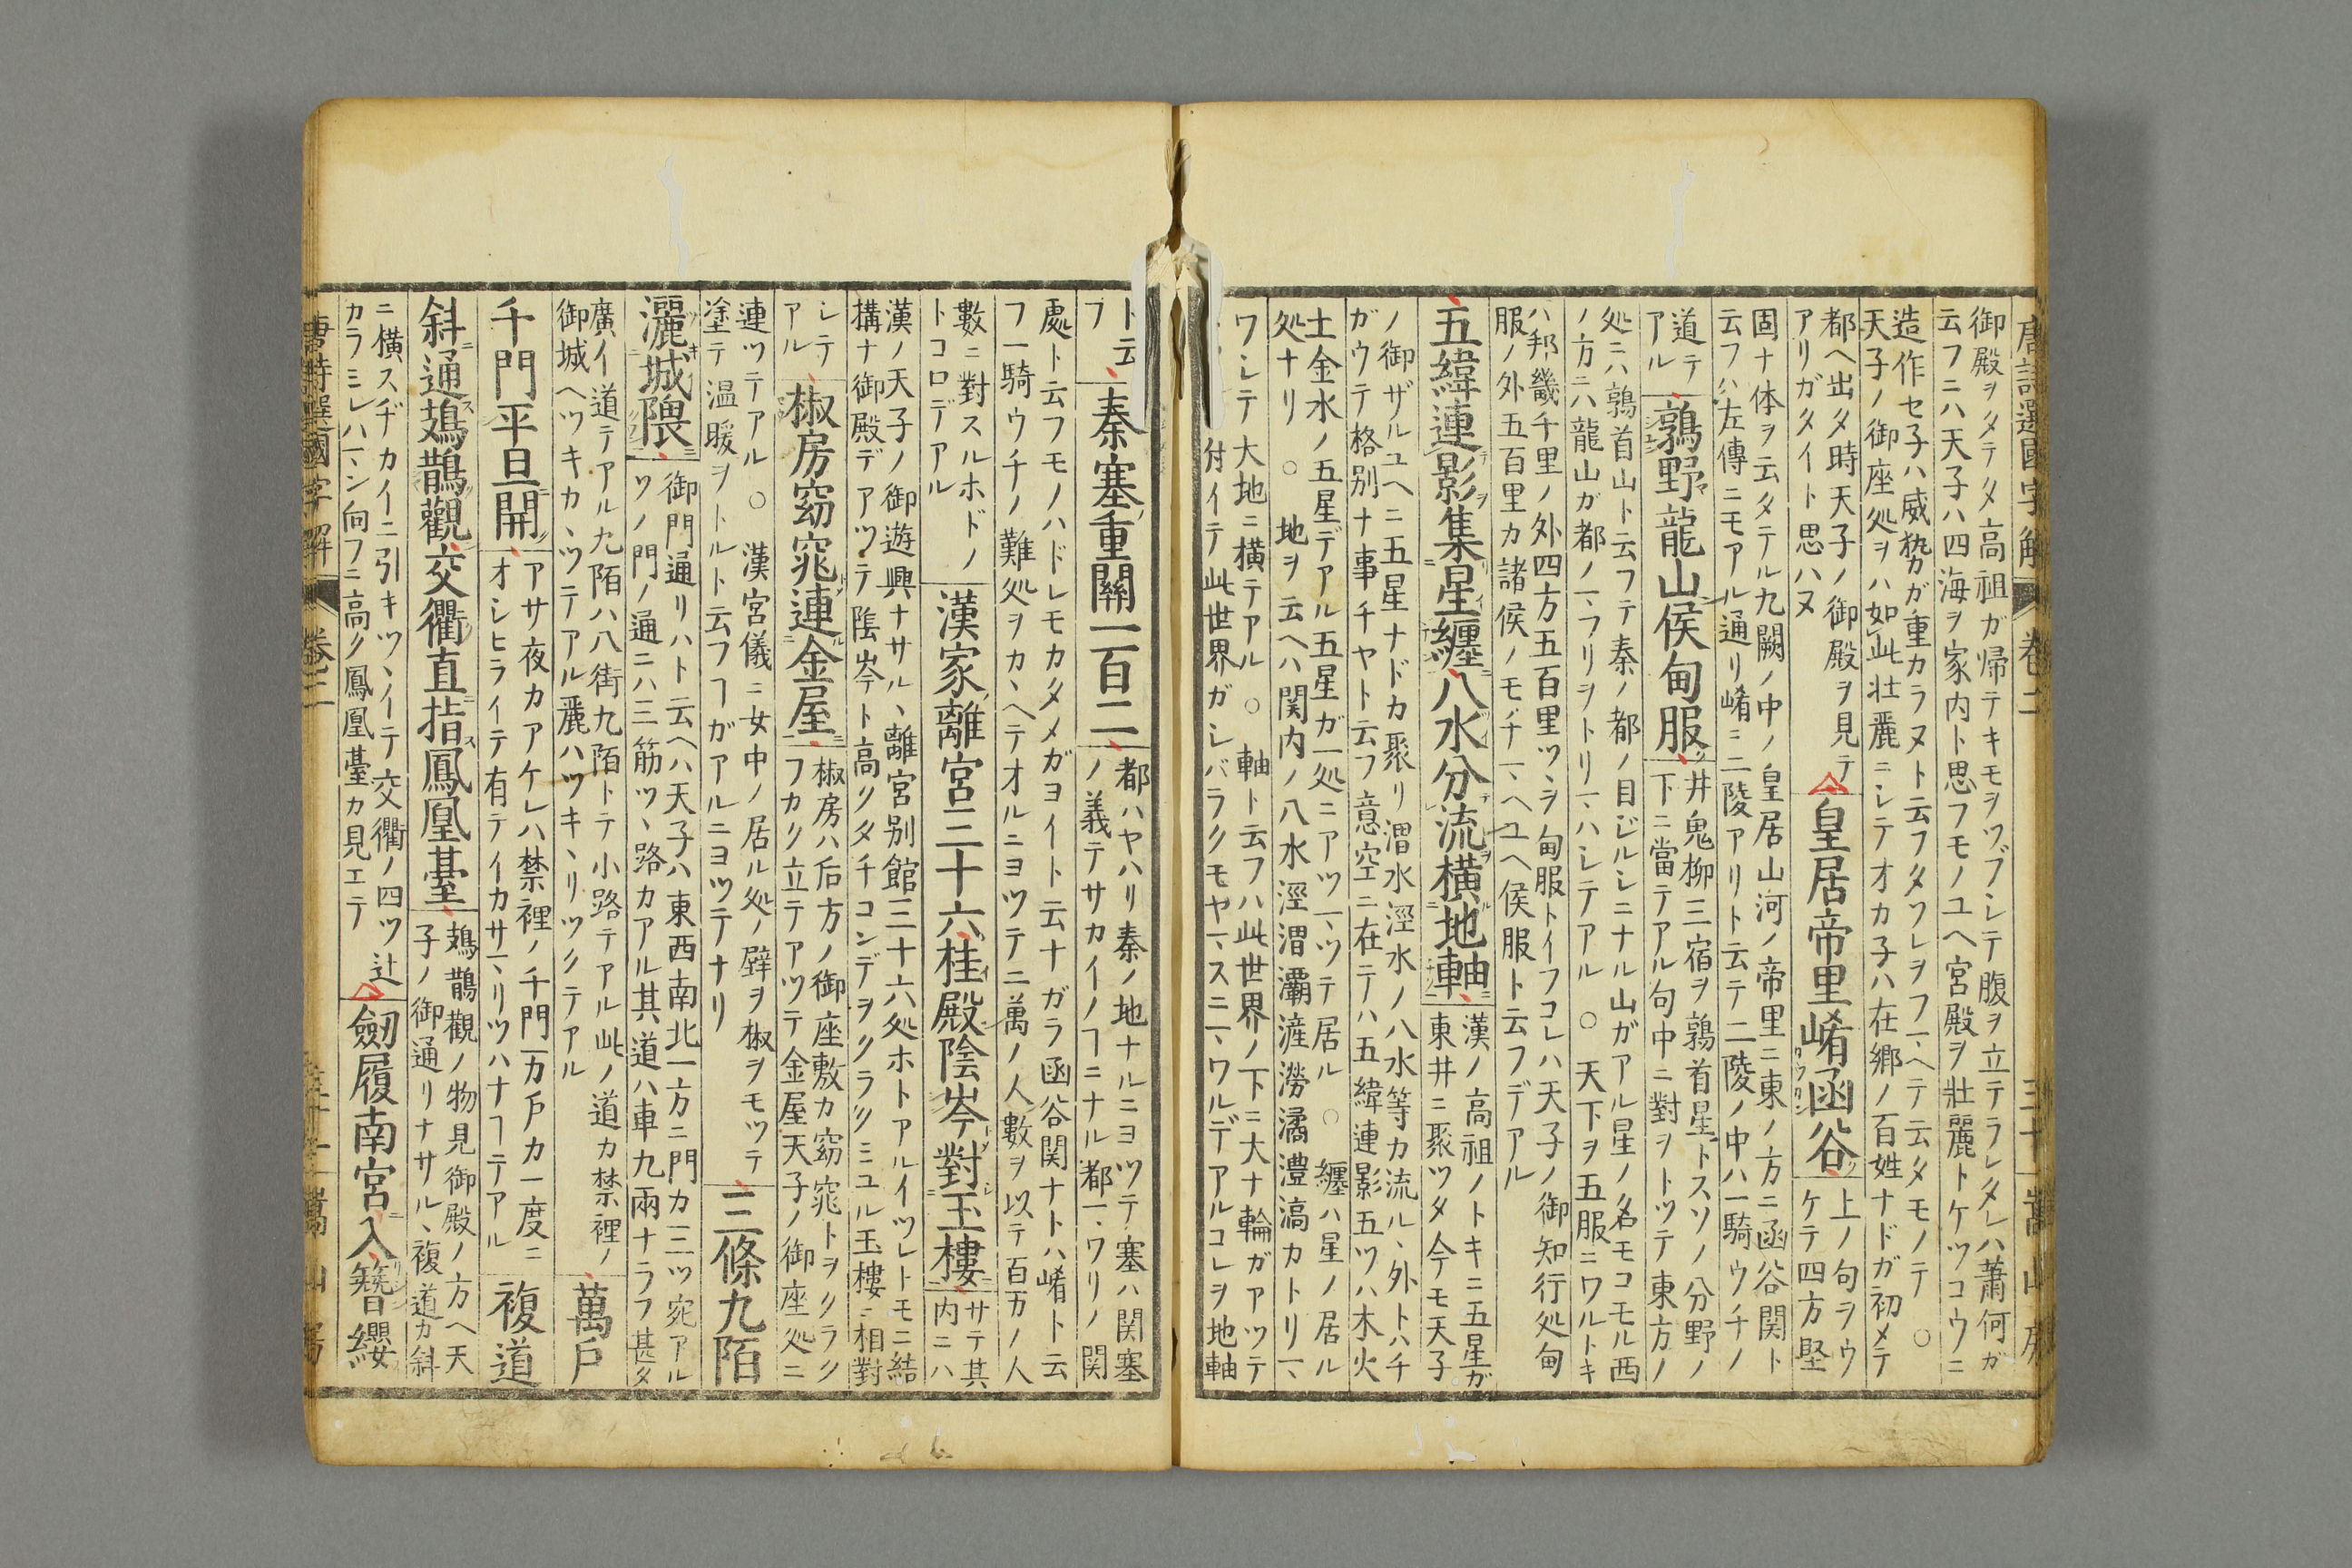 唐詩選國字解 卷二 三十一 嵩山房
御殿ヲタテタ高祖ガ帰テキモヲツブシテ腹ヲ立テラレタレハ蕭何ガ
云フニハ天子ハ四海ヲ家内ト思フモノユヘ宮殿ヲ壮麗トケツコウニ
造作セ子ハ威勢ガ重カラヌト云フタソレヲフヘテ云タモノテ○
天子ノ御座処ヲハ如此壮麗ニシテオカ子ハ在郷ノ百姓ナドガ初メテ
都ヘ出タ時天子ノ御殿ヲ見テ
アリガタイト思ハヌ
皇居帝里崤函谷
上ノ句ヲウ
ケテ四方堅
固ナ体ヲ云タテル九闕ノ中ノ皇居山河ノ帝里ニ東ノ方ニ函谷関ト
云フハ左傳ニモアル通リ崤ニ二陵アリト云テ二陵ノ中ハ一騎ウチノ
道テ
アル
鶉野龍山侯甸服
井鬼柳三宿ヲ鶉首星トスソノ分野ノ
下ニ當テアル句中ニ對ヲトツテ東方ノ
処ニハ鶉首山ト云フテ秦ノ都ノ目ジルシニナル山ガアル星ノ名モコモル西
ノ方ニハ龍山ガ都ノフリヲトリハシテアル○天下ヲ五服ニワルトキ
ハ邦畿千里ノ外四方五百里ツヽヲ甸服トイフコレハ天子ノ御知行処甸
服ノ外五百里カ諸侯ノモチヘユヘ侯服ト云フデアル
五緯連影集星纏
八水分流横地軸
漢ノ高祖ノトキニ五星ガ
東井ニ聚ツタ今モ天子
ノ御ザルユヘニ五星ナドカ聚リ渭水涇水ノ八水等カ流ル外トハチ
ガウテ格別ナ事チヤト云フ意空ニ在テハ五緯連影五ツハ木火
土金水ノ五星デアル五星ガ一処ニアツマツテ居ル○纏ハ星ノ居ル
処ナリ○地ヲ云ヘハ関内ノ八水涇渭灞滻澇潏澧滈カトリ
ワシテ大地ニ横テアル○軸ト云フハ此世界ノ下ニ大ナ輪ガアツテ
付イテ此世界ガシバラクモヤスニワルデアルコレヲ地軸
ト云
フ
秦塞重關一百二
都ハヤハリ秦ノ地ナルニヨツテ塞ハ関塞
ノ義テサカイノヿニナル都ワリノ関
處ト云フモノハドレモカタメガヨイト云ナガラ函谷関ナトハ崤ト云
フ一騎ウチノ難処ヲカヽヘテオルニヨツテ二萬ノ人數ヲ以テ百万ノ人
數ニ對スルホドノ
トコロデアル
漢家離宮三十六
桂殿陰岑對玉樓
サテ其
内ニハ
漢ノ天子ノ御遊興ナサルヽ離宮別館三十六処ホトアルイツレトモニ結
構ナ御殿デアツテ陰岑ト高クタチコンデヲクラクミユル玉樓ニ相對
シテ
アル
椒房窈窕連金屋
椒房ハ后方ノ御座敷カ窈窕トヲクラク
フカク立テアツテ金屋天子ノ御座処ニ
連ツテアル○漢宮儀ニ女中ノ居ル処ノ壁ヲ椒ヲモツテ
塗テ温暖ヲトルト云フヿガアルニヨツテナリ
三條九陌
灑城隈
御門通リハト云ヘハ天子ハ東西南北一方ニ門カ三ツ宛アル
ツノ門ノ通ニハ三筋ツヽ路カアル其道ハ車九兩ナラフ甚タ
廣イ道テアル九陌ハ八街九陌トテ小路テアル此ノ道カ禁裡ノ
御城ヘツキカヽツテアル麗ハツキヽリツクテアル
萬戸
千門平旦開
アサ夜カアケレハ禁裡ノ千門万戸カ一度ニ
オシヒライテ有テイカサリツハナヿテアル
複道
斜通鳷鵲觀
交衢直指鳳凰臺
鳷鵲觀ノ物見御殿ノ方ヘ天
子ノ御通リナサルヽ複道カ斜
ニ横スヂカイニ引キツヽイテ交衢ノ四ツ辻
カラミレハン向フニ高ク鳳凰臺カ見エテ
劔履南宮入
簪纓
唐詩選國字解 卷二